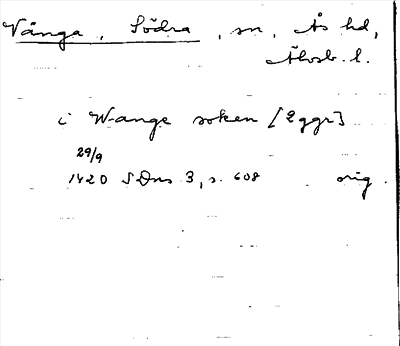 Vånga, Södra, sn, Ås hd,
Älvsb. l.
i Wange soken [Eggr]
29/9
1420 SDns 3, s. 608 orig.